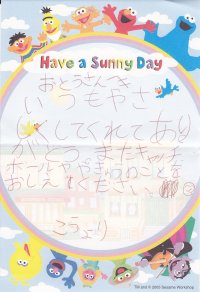 Have a Sunny Day
おとうさんへ
いつもやさ
しくしてくれてあり
がとう。またキャッチ
ボールややきゅうのことを
おしえてください。
こうより
TM and © 2005 Sesame Workshop